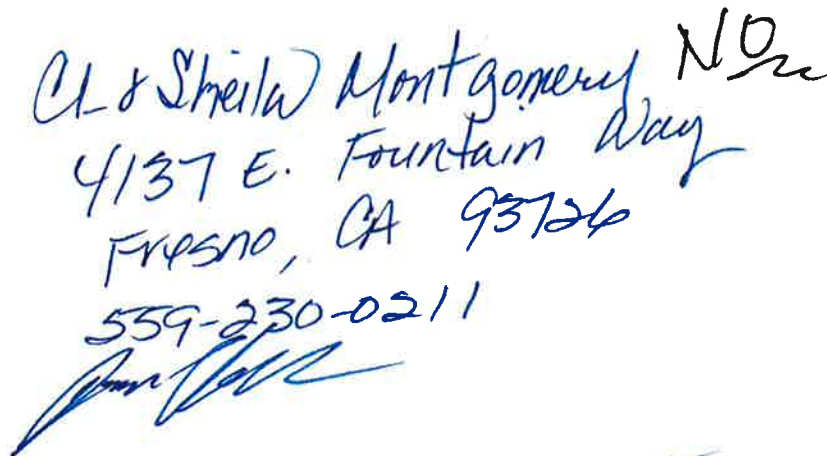 CL & Sheila Montgomery NO
4137 E. Fountain Way
Fresno, CA 93726
559-230-0211